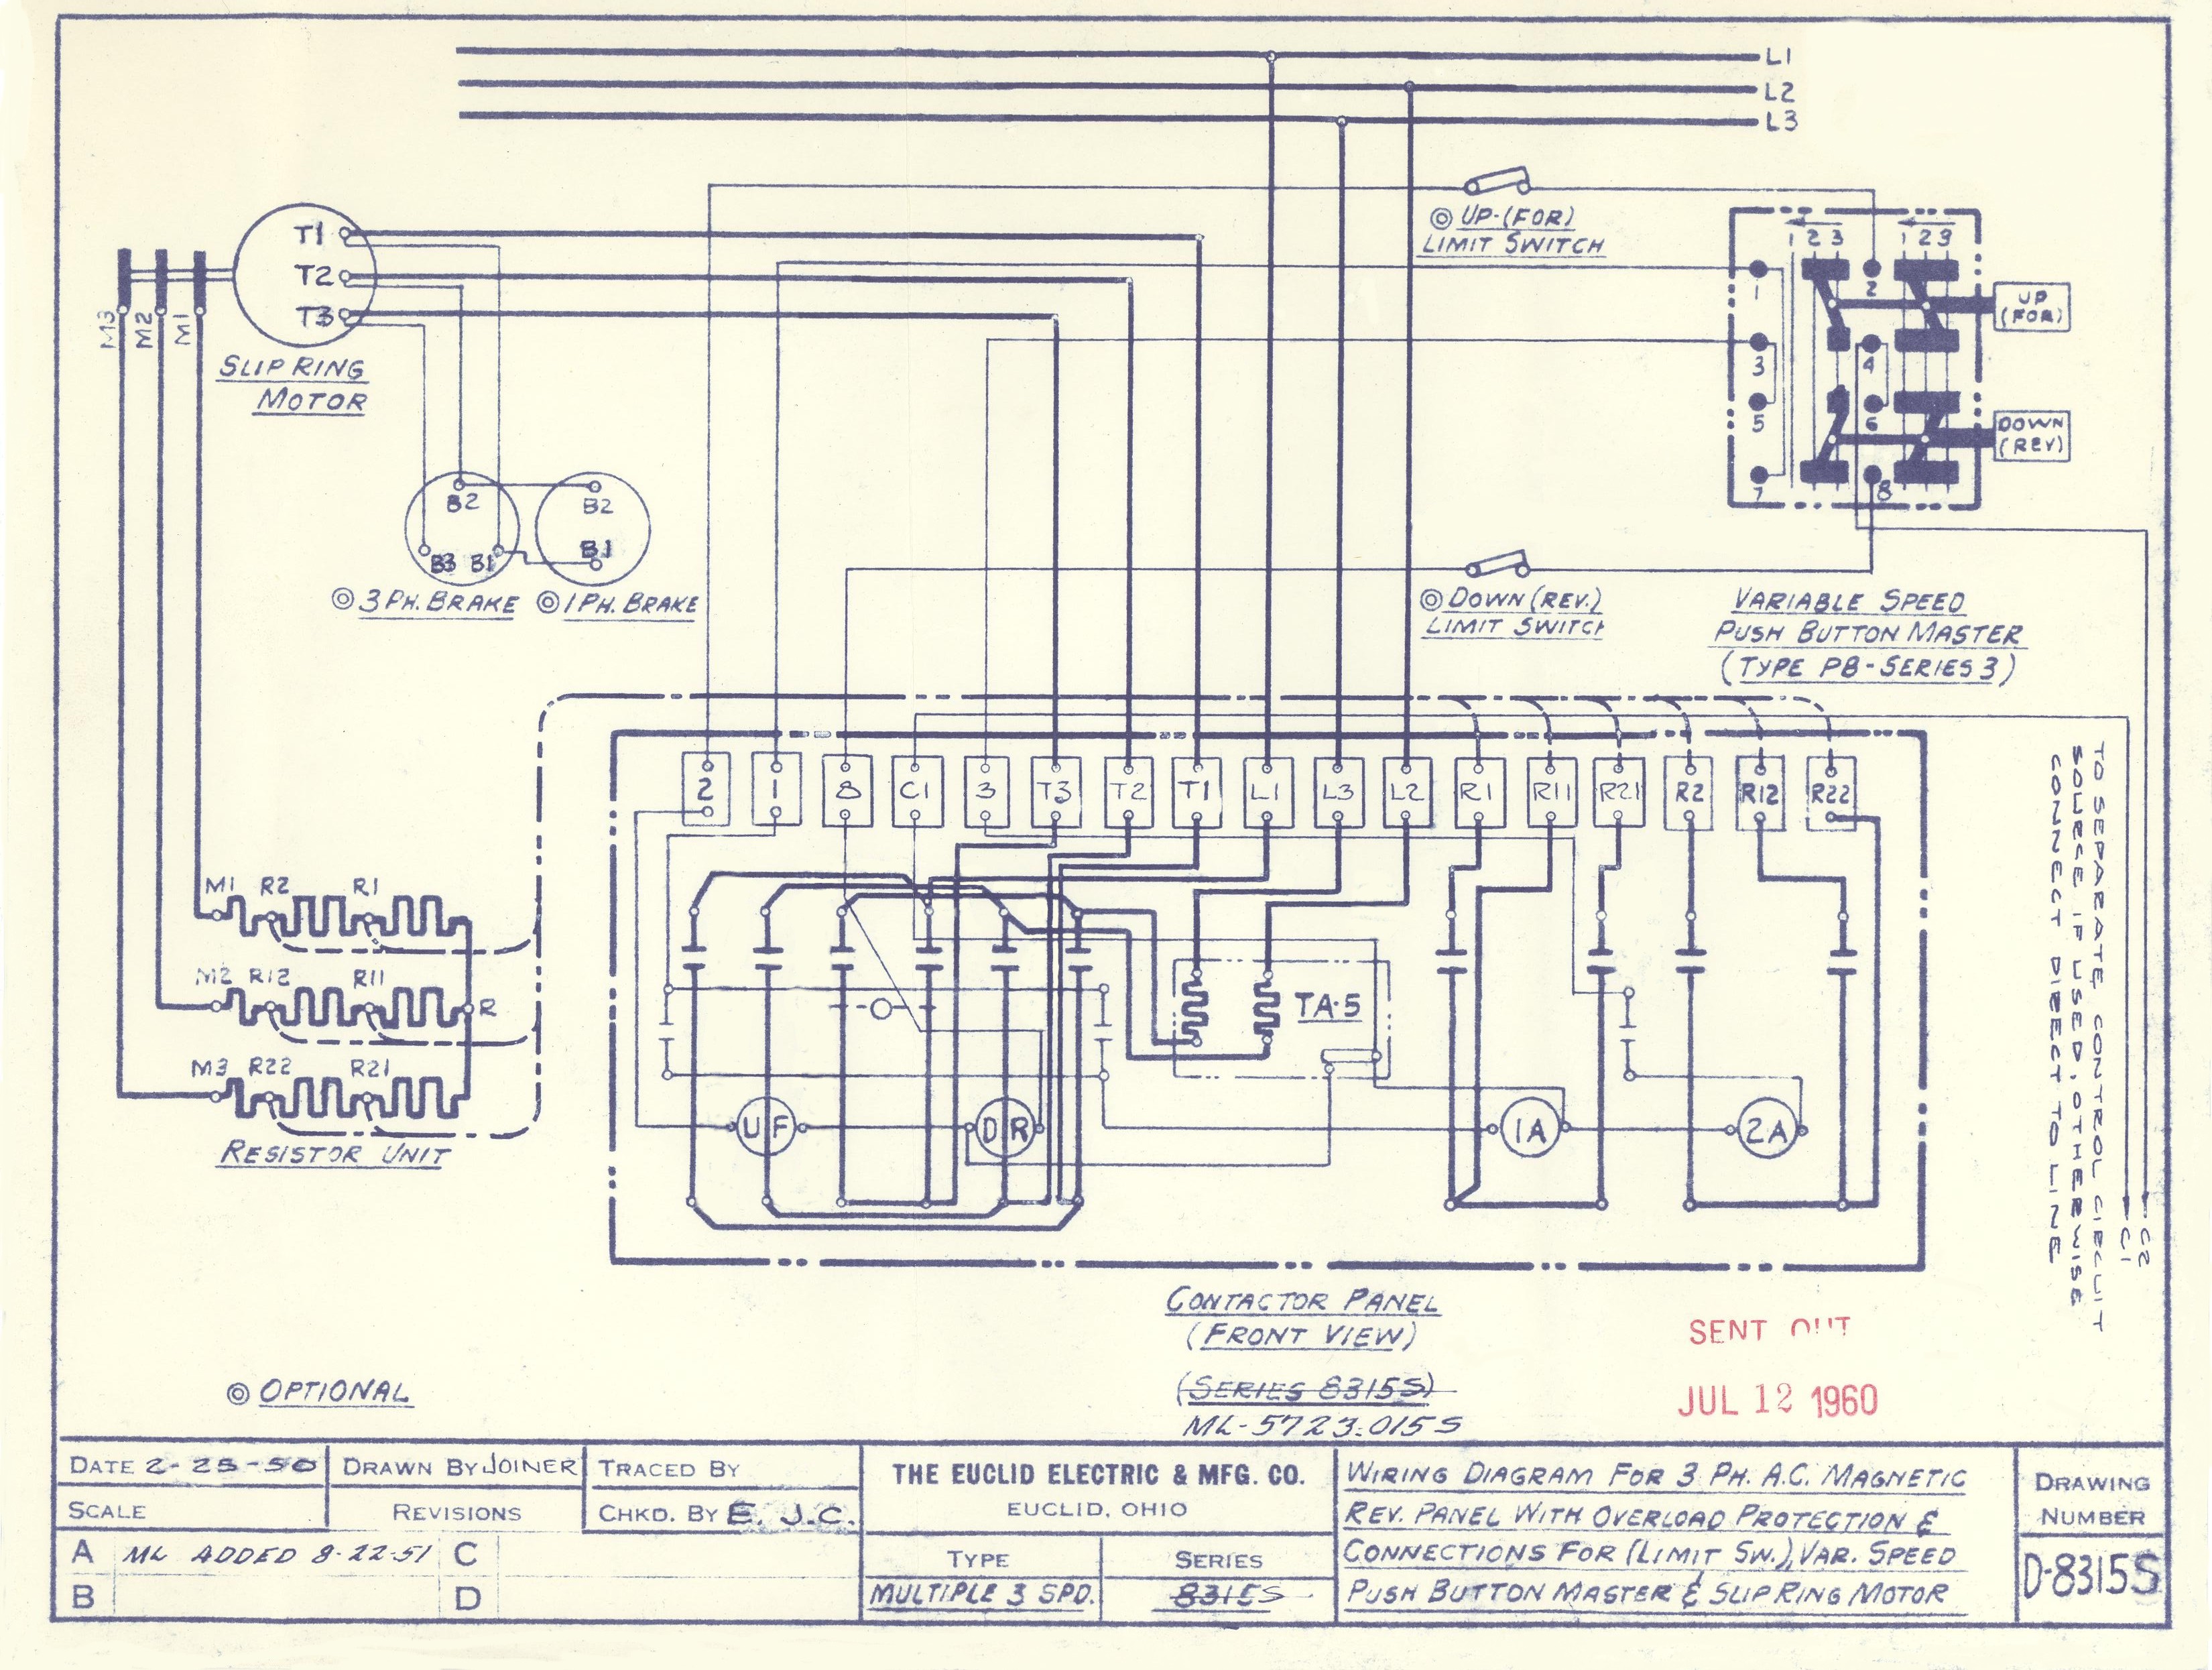 L1
L2
L3
◎ UP-(FOR)
LIMIT SWITCH
T1
T2
T3
M3 M2 M1
SLIP RING
MOTOR
1 2 3 1 2 3
1 2
3 4
5 6
7 8
UP
(FOR)
DOWN
(REV)
B2
B3 B1
B2
B1
◎ 3 PH. BRAKE ◎ 1 PH. BRAKE
◎ DOWN (REV.)
LIMIT SWITCH
VARIABLE SPEED
PUSH BUTTON MASTER
(TYPE PB-SERIES 3)
2 1 8 C1 3 T3 T2 T1 L1 L3 L2 R1 R11 R21 R2 R12 R22
M1 R2 R1
M2 R12 R11 R
M3 R22 R21
RESISTOR UNIT
TA-5
UF DR 1A 2A
TO SEPARATE CONTROL CIRCUIT
SOURCE IF USED, OTHERWISE
CONNECT DIRECT TO LINE
C2
C1
CONTACTOR PANEL
(FRONT VIEW)
(SERIES 8315S)
ML-5723-015S
SENT OUT
JUL 12 1960
◎ OPTIONAL
DATE 2-25-50
DRAWN BY JOINER
TRACED BY
SCALE
REVISIONS
CHKD. BY E. J.C.
A ML ADDED 8-22-51 C
B D
THE EUCLID ELECTRIC & MFG. CO.
EUCLID, OHIO
TYPE
MULTIPLE 3 SPD.
SERIES
8315S
WIRING DIAGRAM FOR 3 PH. A.C. MAGNETIC
REV. PANEL WITH OVERLOAD PROTECTION &
CONNECTIONS FOR (LIMIT SW.), VAR. SPEED
PUSH BUTTON MASTER & SLIP RING MOTOR
DRAWING
NUMBER
D-8315S